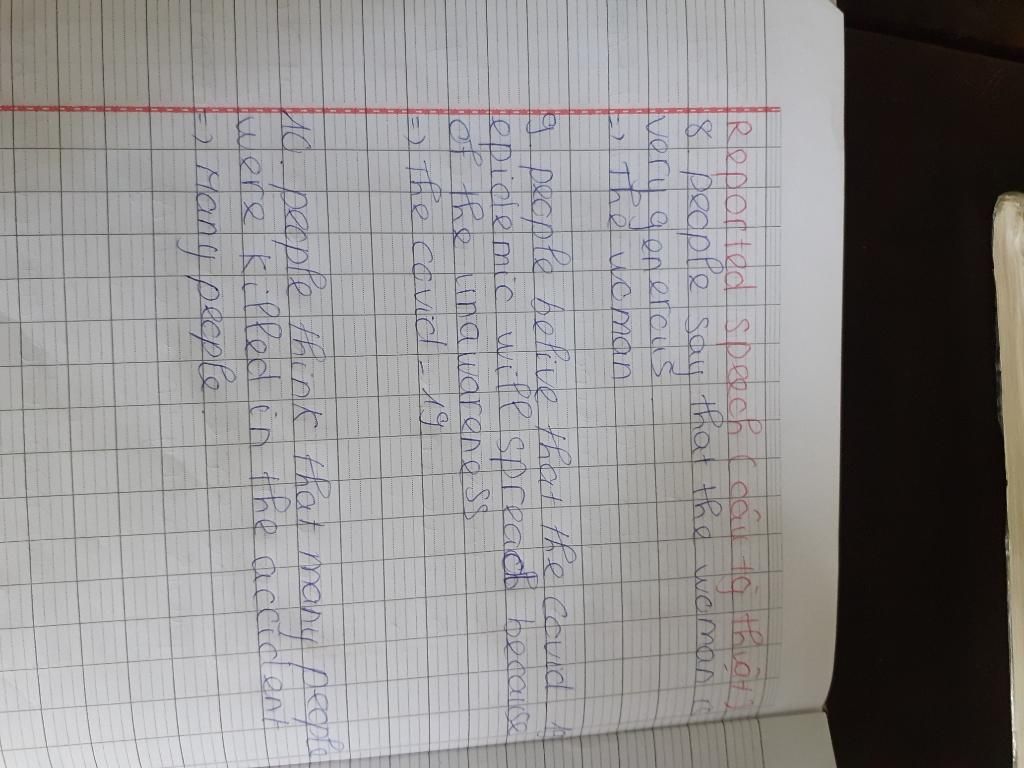 Reported speech (câu tg thuật)
8 people say that the woman is
very generous
=> The woman
9. people belive that the Covid 19
epidemic will spread because
of the unawareness
=> the covid - 19
10. people think that many people
were killed in the accident
=> Many people